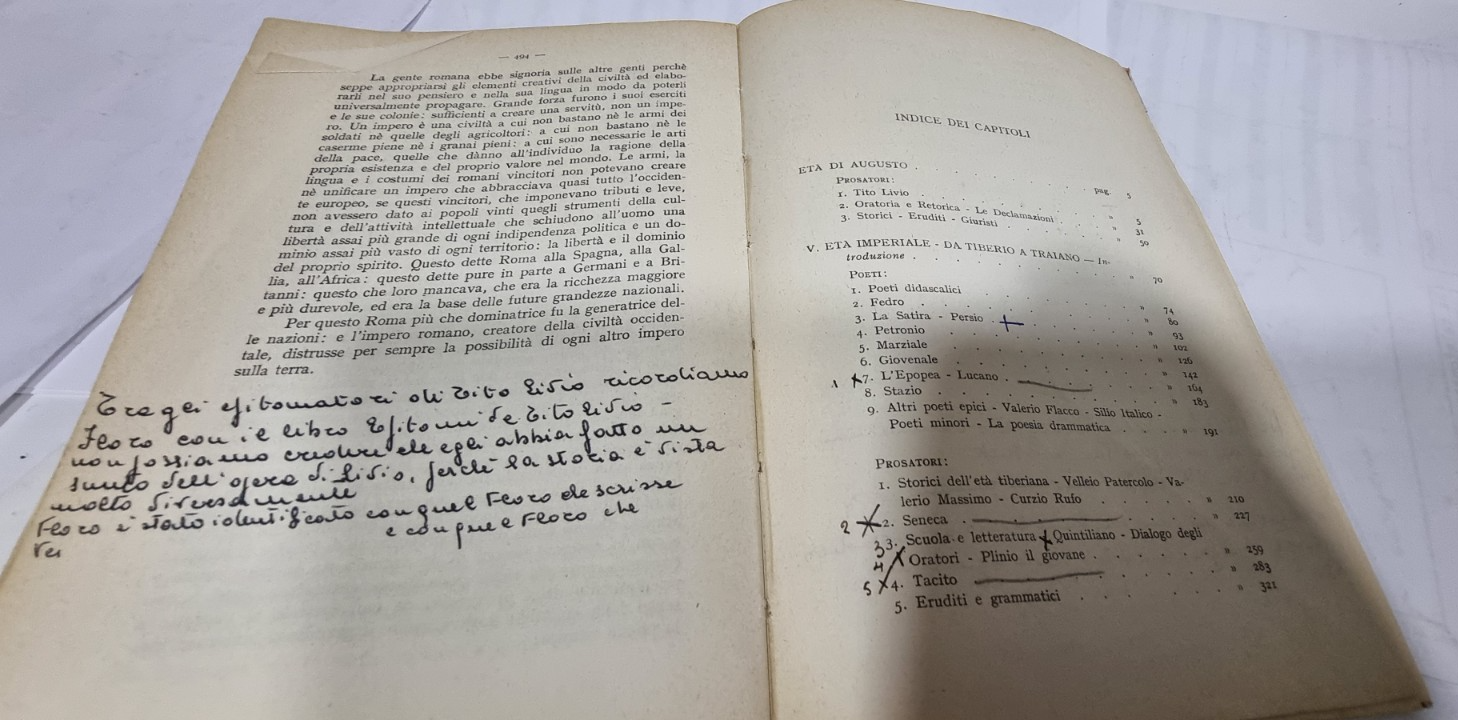 — 494 —
La gente romana ebbe signoria sulle altre genti perchè
seppe appropriarsi gli elementi creativi della civiltà ed elabo-
rarli nel suo pensiero e nella sua lingua in modo da poterli
universalmente propagare. Grande forza furono i suoi eserciti
e le sue colonie: sufficienti a creare una servitù, non un impe-
ro. Un impero è una civiltà a cui non bastano nè le armi dei
soldati nè quelle degli agricoltori: a cui non bastano nè le
caserme piene nè i granai pieni: a cui sono necessarie le arti
della pace, quelle che dànno all'individuo la ragione della
propria esistenza e del proprio valore nel mondo. Le armi, la
lingua e i costumi dei romani vincitori non potevano creare
nè unificare un impero che abbracciava quasi tutto l'occiden-
te europeo, se questi vincitori, che imponevano tributi e leve,
non avessero dato ai popoli vinti quegli strumenti della cul-
tura e dell'attività intellettuale che schiudono all'uomo una
libertà assai più grande di ogni indipendenza politica e un do-
minio assai più vasto di ogni territorio: la libertà e il dominio
del proprio spirito. Questo dette Roma alla Spagna, alla Gal-
lia, all'Africa: questo dette pure in parte a Germani e a Bri-
tanni: questo che loro mancava, che era la ricchezza maggiore
e più durevole, ed era la base delle future grandezze nazionali.
Per questo Roma più che dominatrice fu la generatrice del-
le nazioni: e l'impero romano, creatore della civiltà occiden-
tale, distrusse per sempre la possibilità di ogni altro impero
sulla terra.
Tra gli epitomatori di Tito Livio ricordiamo
Floro con il libro Epitomi de Tito Livio -
non possiamo credere che egli abbia fatto un
sunto dell'opera di Livio, perchè la storia è vista
molto diversamente
Floro è stato identificato con quel Floro che scrisse
e con quel Floro che
INDICE DEI CAPITOLI
ETÀ DI AUGUSTO . pag. 5
PROSATORI:
1. Tito Livio . » 5
2. Oratoria e Retorica - Le Declamazioni . » 31
3. Storici - Eruditi - Giuristi . » 50
V. ETÀ IMPERIALE - DA TIBERIO A TRAIANO — In-
troduzione . » 70
POETI:
1. Poeti didascalici . » 74
2. Fedro . » 80
3. La Satira - Persio . » 93
4. Petronio . » 102
5. Marziale . » 126
6. Giovenale . » 142
1 7. L'Epopea - Lucano . » 164
8. Stazio . » 183
9. Altri poeti epici - Valerio Flacco - Silio Italico -
Poeti minori - La poesia drammatica . » 191
PROSATORI:
1. Storici dell'età tiberiana - Velleio Patercolo - Va-
lerio Massimo - Curzio Rufo . » 210
2 2. Seneca . » 227
3 3. Scuola e letteratura - Quintiliano - Dialogo degli
4 Oratori - Plinio il giovane . » 259
5 4. Tacito » 283
5. Eruditi e grammatici . » 321